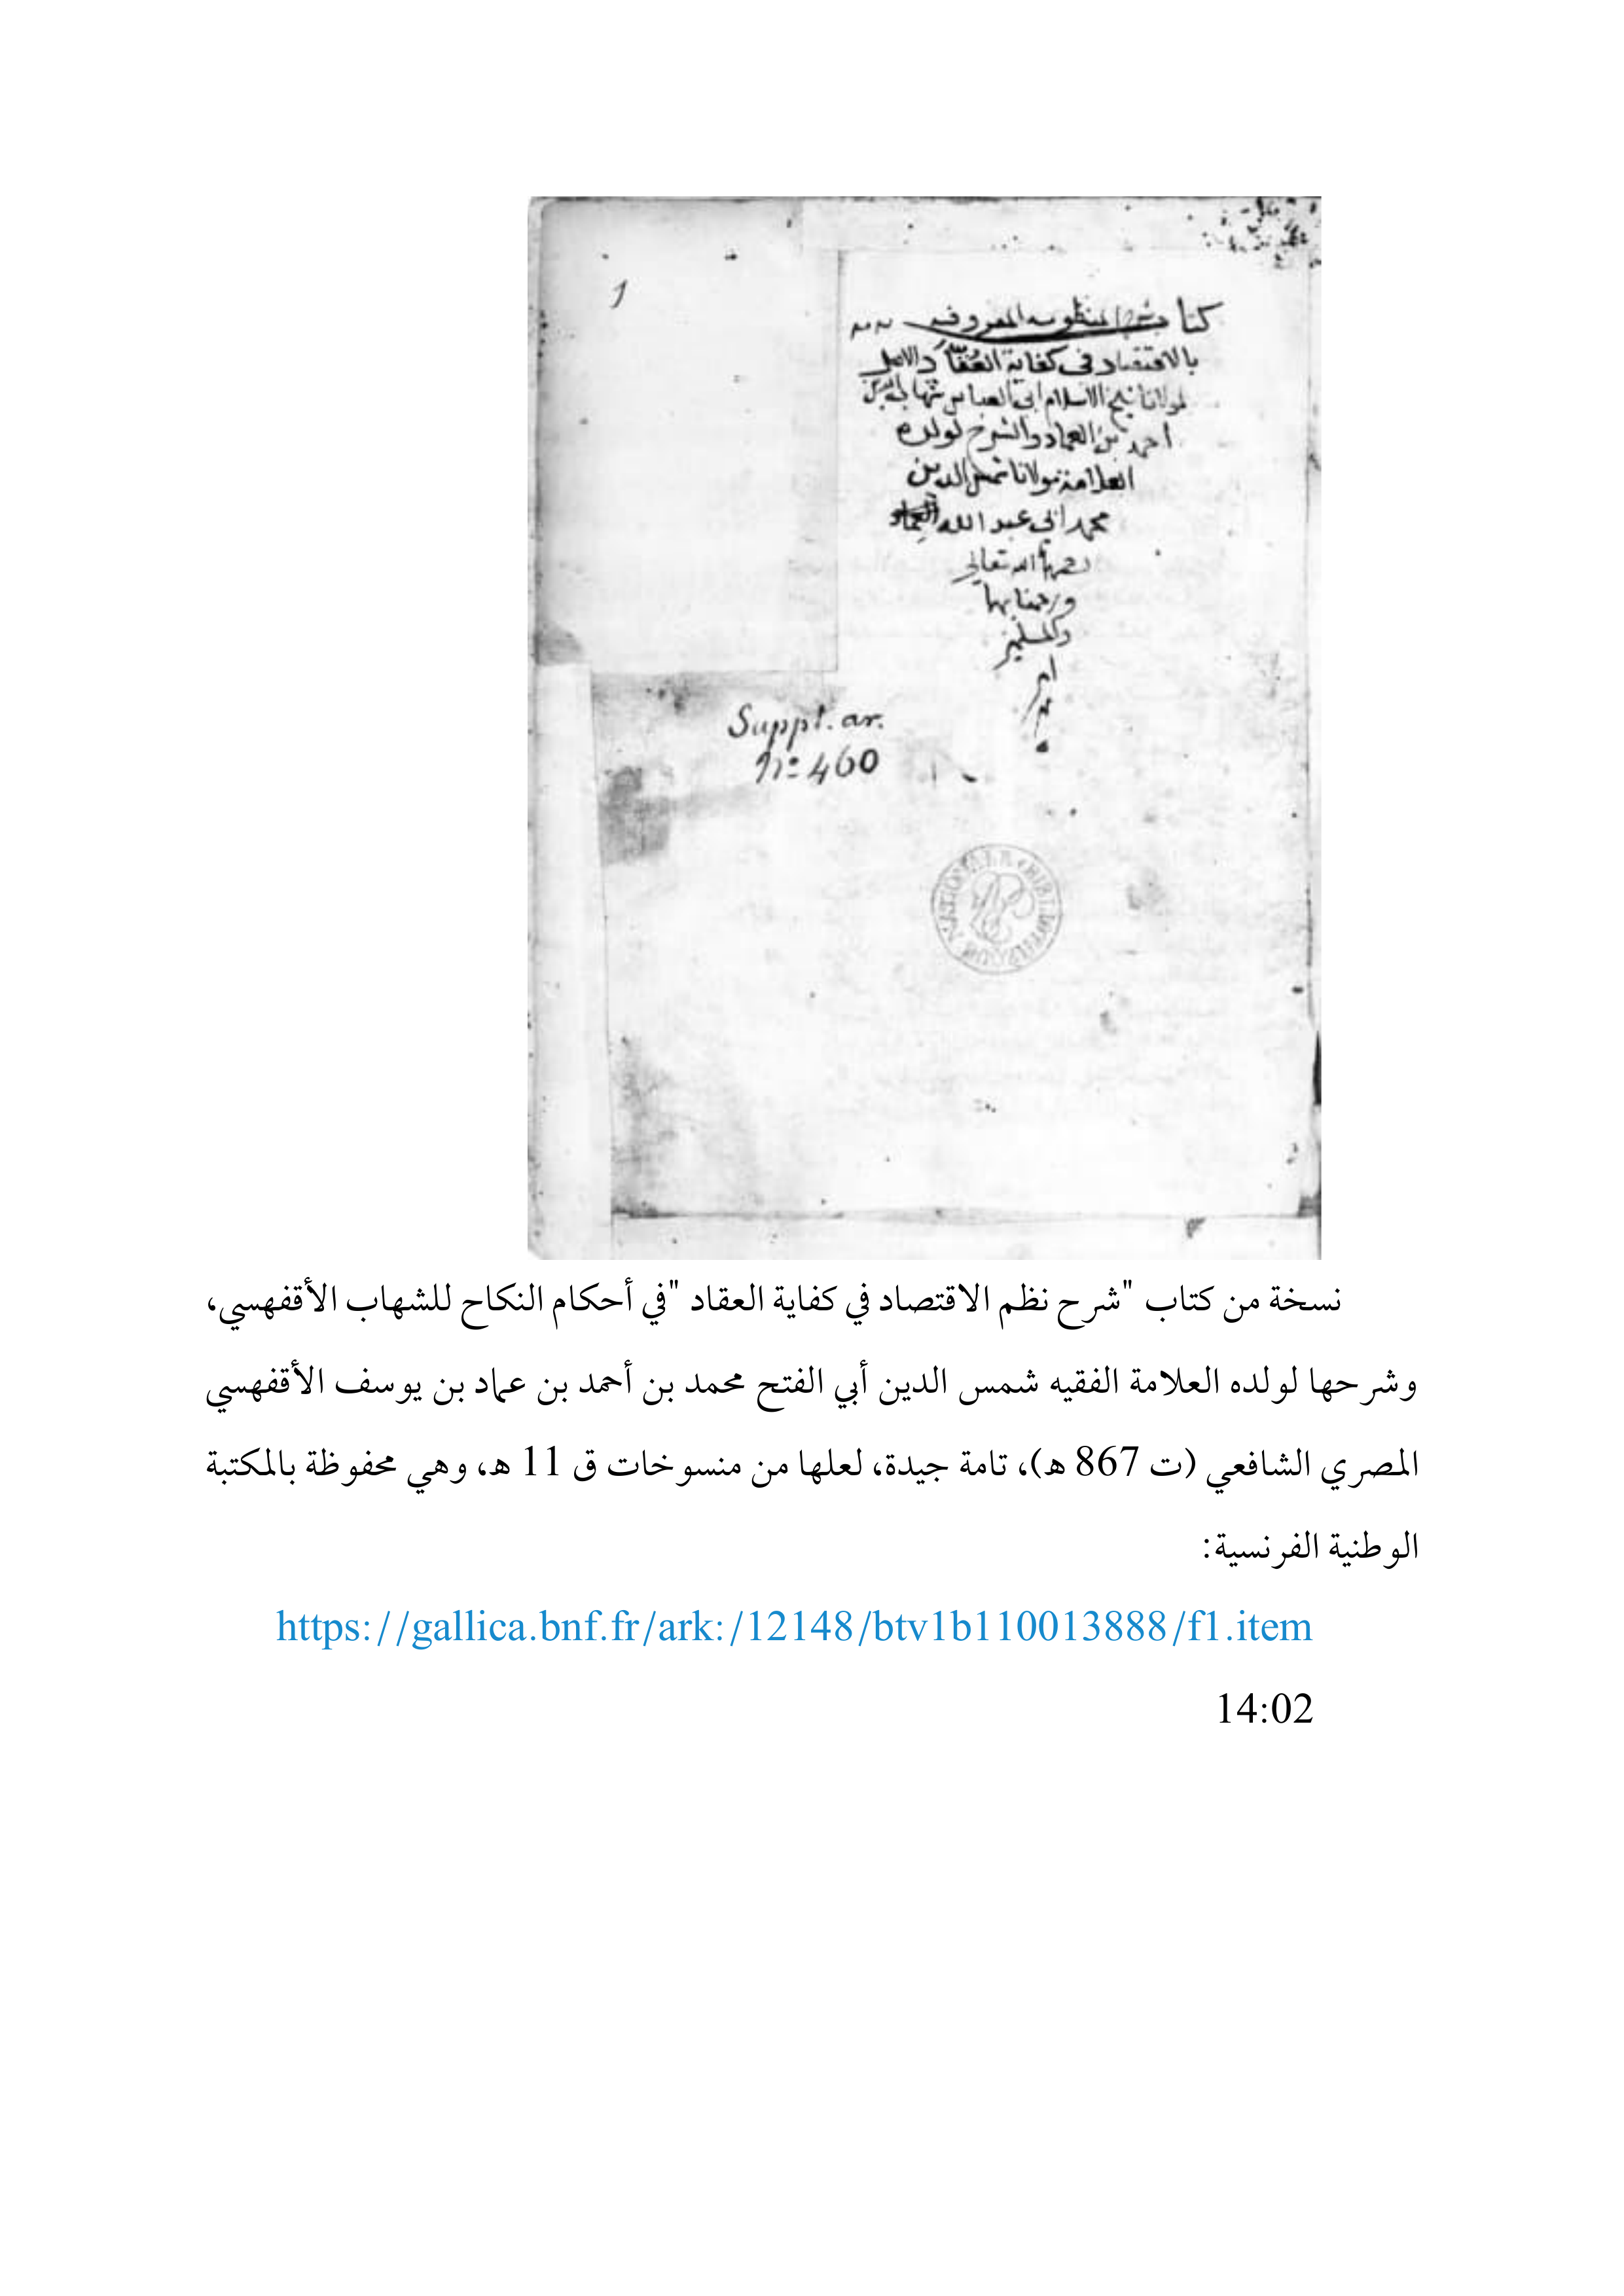 1
كتاب شرح المنظومه المعروفه
بالاقتصاد في كفاية العُقّاد والاصل
لمولانا شيخ الاسلام ابي العباس شهاب الدين
احمد بن العماد والشرح لولده
العلامة مولانا شمس الدين
محمد ابي عبد الله
رحمهما الله تعالى
ورحمنا بهما
والمسلمين
امين
Suppl. ar.
No 460
BIBLIOTHEQUE NATIONALE
نسخة من كتاب "شرح نظم الاقتصاد في كفاية العقاد "في أحكام النكاح للشهاب الأقفهسي،
وشرحها لولده العلامة الفقيه شمس الدين أبي الفتح محمد بن أحمد بن عماد بن يوسف الأقفهسي
المصري الشافعي (ت 867 هـ)، تامة جيدة، لعلها من منسوخات ق 11 هـ، وهي محفوظة بالمكتبة
الوطنية الفرنسية:
https://gallica.bnf.fr/ark:/12148/btv1b110013888/f1.item
14:02